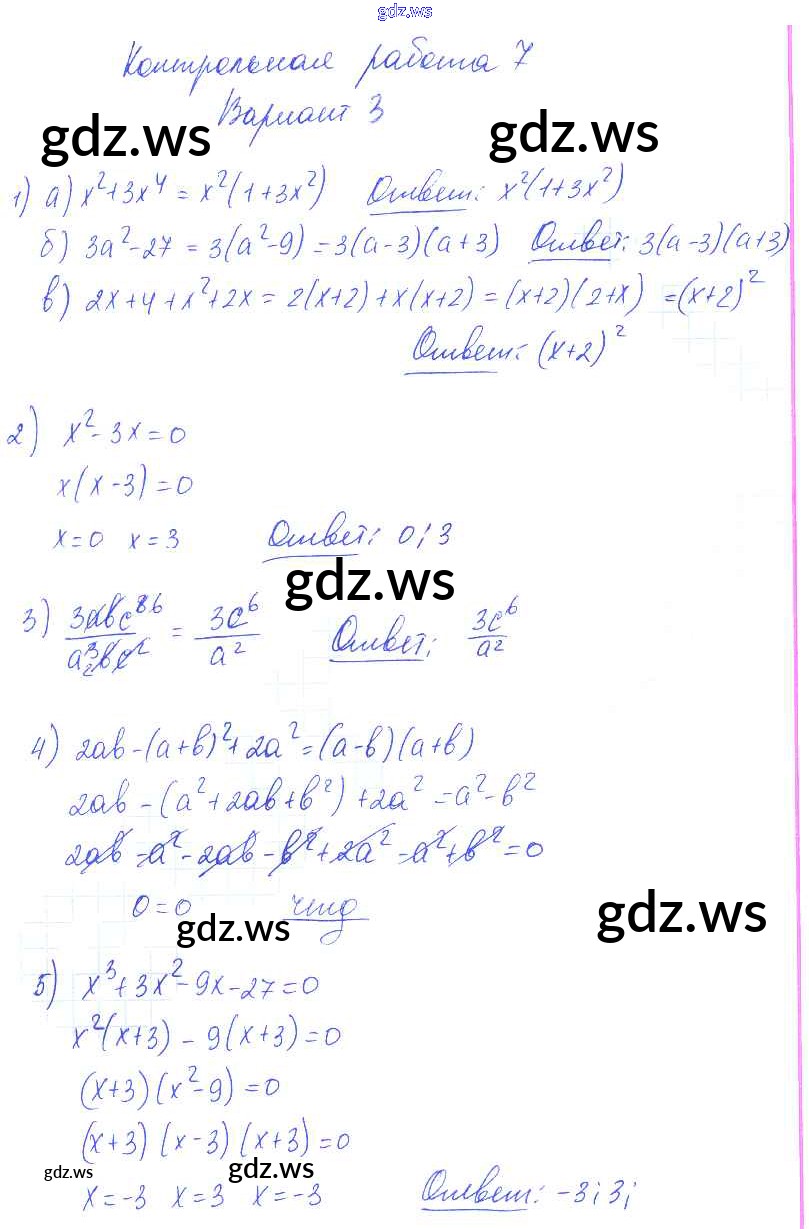 gdz.ws
Контрольная работа 7
Вариант 3
gdz.ws gdz.ws
1) а) x²+3x⁴ = x²(1+3x²) Ответ: x²(1+3x²)
б) 3a²-27 = 3(a²-9) = 3(a-3)(a+3) Ответ: 3(a-3)(a+3)
в) 2x+4+x²+2x = 2(x+2)+x(x+2) = (x+2)(2+x) = (x+2)²
Ответ: (x+2)²
2) x²-3x=0
x(x-3)=0
x=0 x=3 Ответ: 0; 3
gdz.ws
3) 3abc⁸ ⁶ / a³ ₂bc² = 3c⁶/a² Ответ: 3c⁶/a²
4) 2ab-(a+b)²+2a²=(a-b)(a+b)
2ab-(a²+2ab+b²)+2a²=a²-b²
2ab-a²-2ab-b²+2a²-a²+b²=0
0=0 чтд
gdz.ws gdz.ws
5) x³+3x²-9x-27=0
x²(x+3)-9(x+3)=0
(x+3)(x²-9)=0
(x+3)(x-3)(x+3)=0
gdz.ws gdz.ws
x=-3 x=3 x=-3 Ответ: -3; 3;